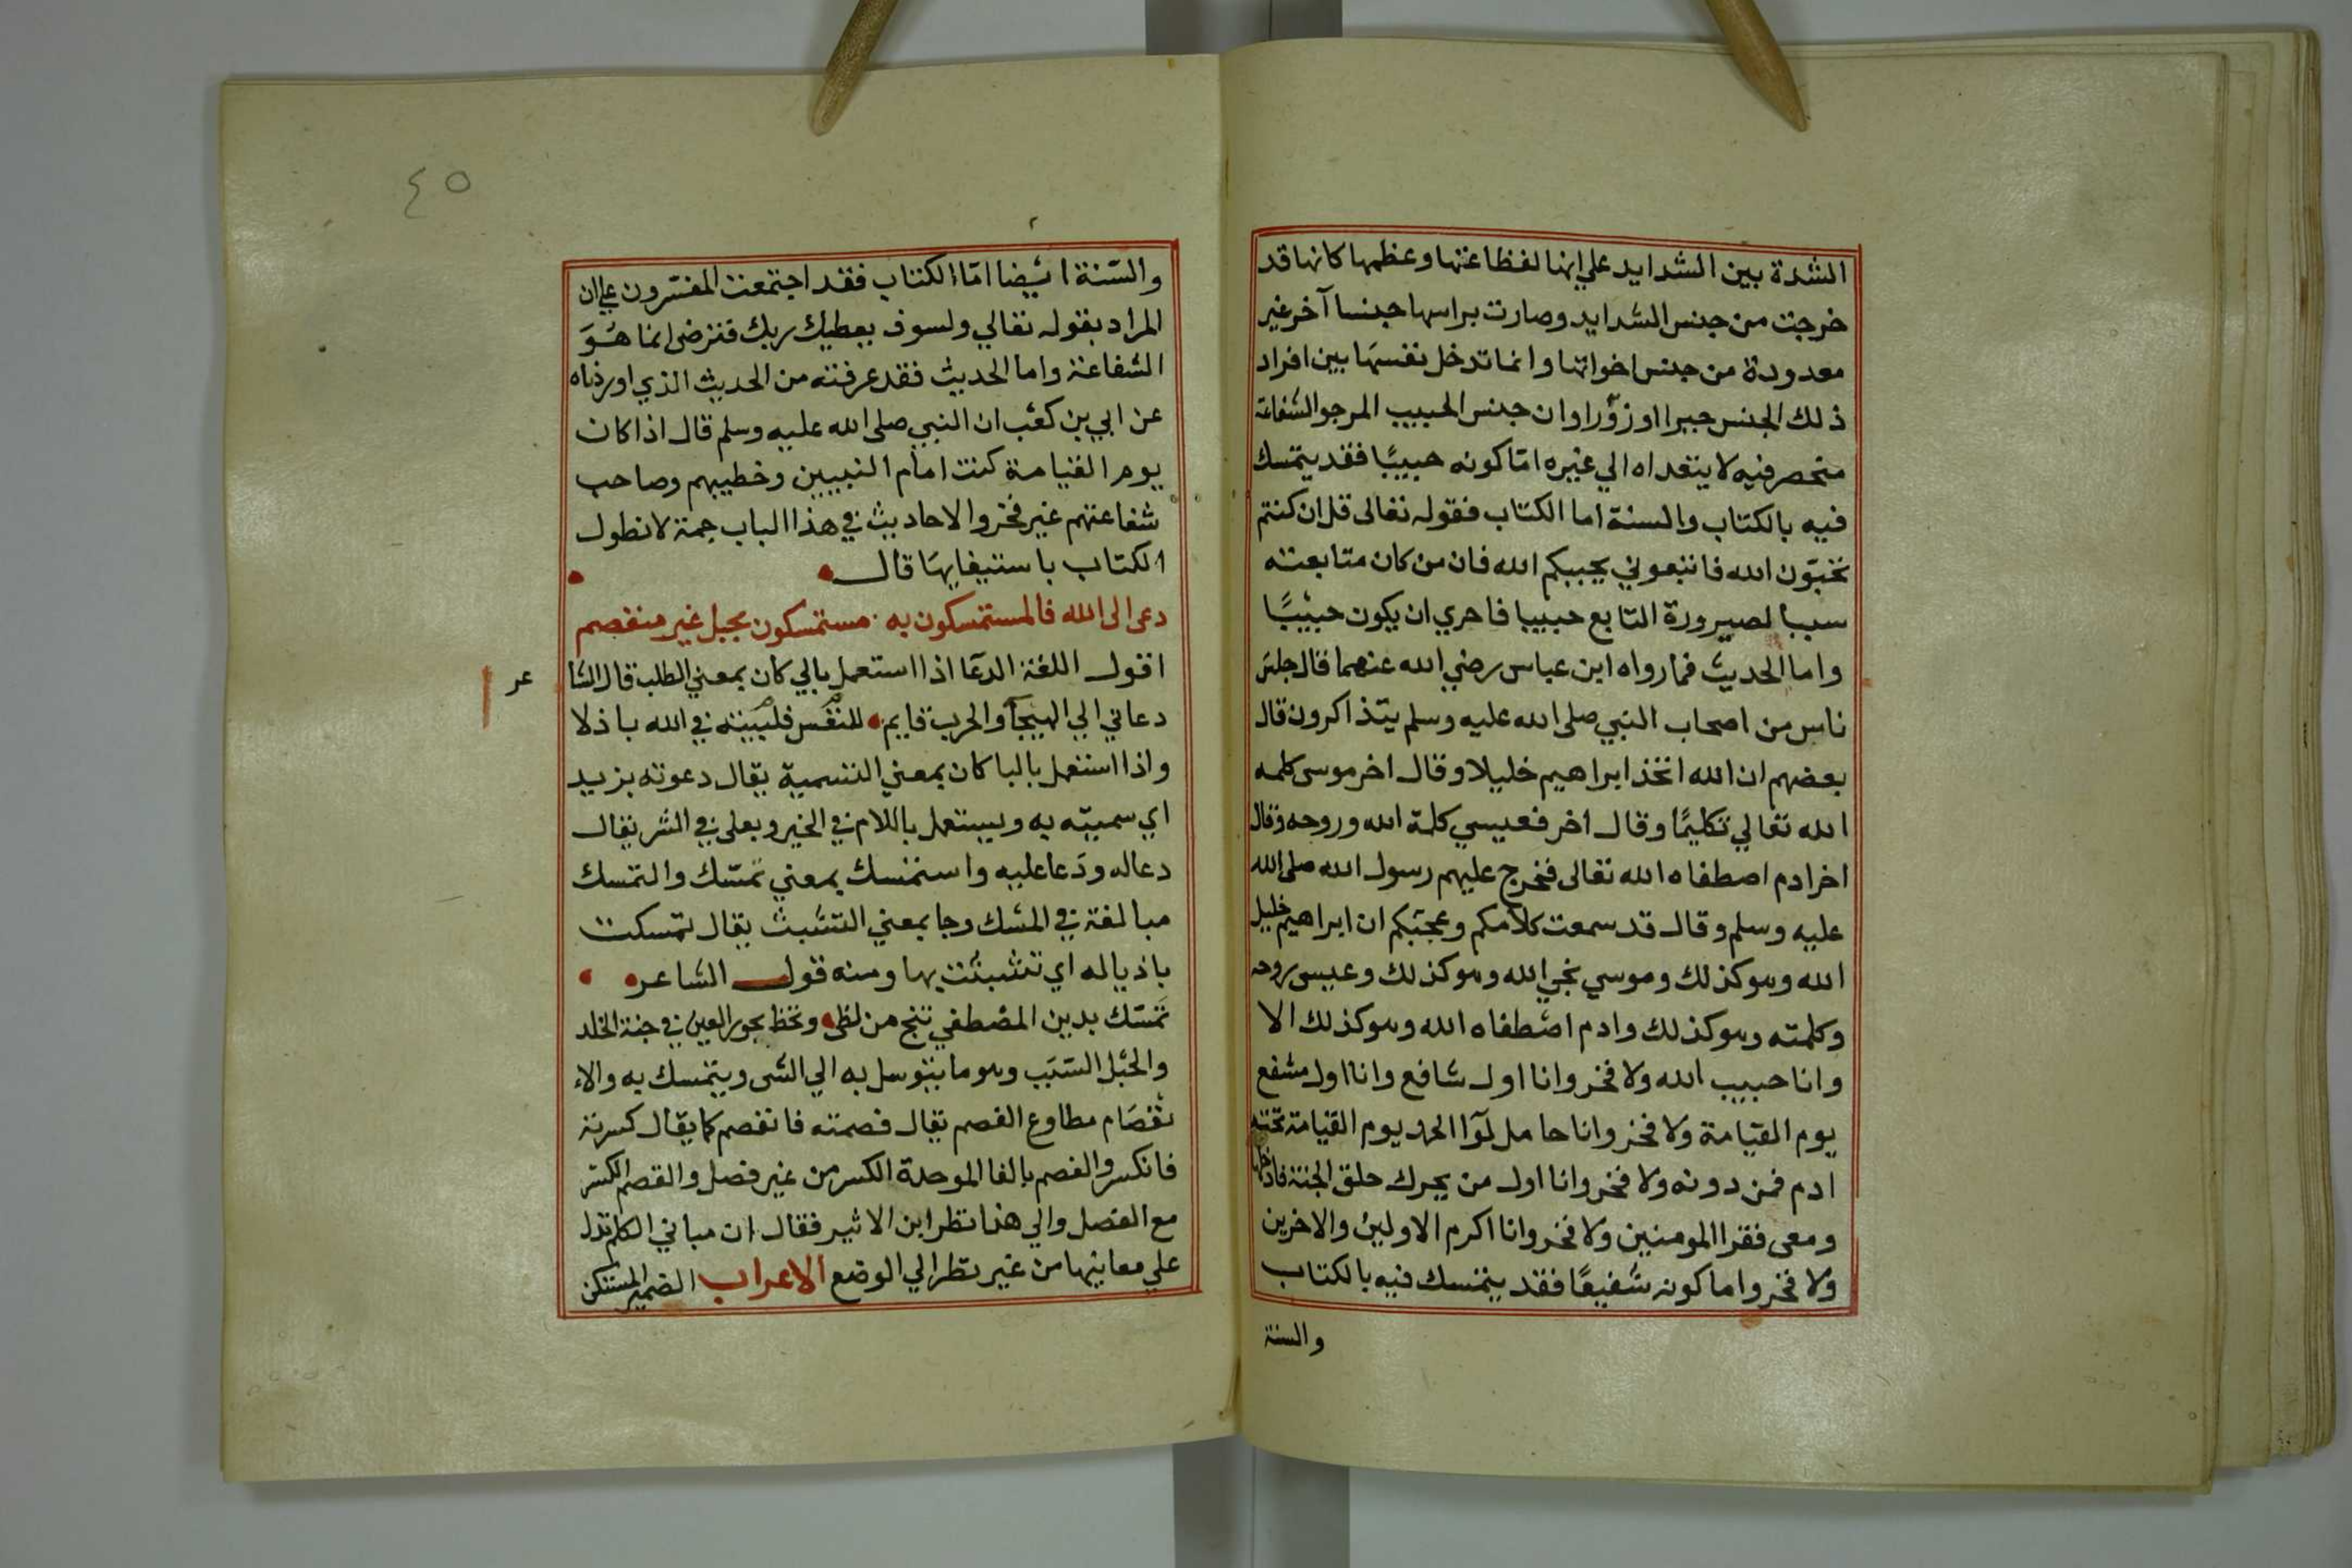 الشدة بين الشدايد علي انها لفظاعتها وعظمها كانها قد
خرجت من جنس الشدايد وصارت براسها جنسا آخر غير
معدودة من جنس اخواتها وانما تدخل نفسها بين افراد
ذلك الجنس جبرا او زورا وان جنس الحبيب المرجو الشفاعة
منحصر فيه لا يتعداه الي غيره اما كونه حبيبا فقد يتمسك
فيه بالكتاب والسنة اما الكتاب فقوله تعالى قل ان كنتم
تحبون الله فاتبعوني يحببكم الله فان من كان متابعته
سببا لصيرورة التابع حبيبا فاحري ان يكون حبيبا
واما الحديث فما رواه ابن عباس رضي الله عنهما قال جلس
ناس من اصحاب النبي صلى الله عليه وسلم يتذاكرون قال
بعضهم ان الله اتخذ ابراهيم خليلا وقال اخر موسى كلمه
الله تعالي تكليما وقال اخر فعيسي كلمة الله وروحه وقال
اخر ادم اصطفاه الله تعالى فخرج عليهم رسول الله صلى الله
عليه وسلم وقال قد سمعت كلامكم وعجبكم ان ابراهيم خليل
الله وهو كذلك وموسي نجي الله وهو كذلك وعيسى روحه
وكلمته وهو كذلك وادم اصطفاه الله وهو كذلك الا
وانا حبيب الله ولا فخر وانا اول شافع وانا اول مشفع
يوم القيامة ولا فخر وانا حامل لوآ الحمد يوم القيامة تحته
ادم فمن دونه ولا فخر وانا اول من يحرك حلق الجنة فادخلها
ومعى فقرا المومنين ولا فخر وانا اكرم الاولين والاخرين
ولا فخر واما كونه شفيعا فقد يتمسك فيه بالكتاب
والسنة
٤٥
والسنة ايضا اما الكتاب فقد اجتمعت المفسرون علي ان
المراد بقوله تعالي ولسوف يعطيك ربك فترضى انما هو
الشفاعة واما الحديث فقد عرفته من الحديث الذي اوردناه
عن ابي بن كعب ان النبي صلى الله عليه وسلم قال اذا كان
يوم القيامة كنت امام النبيين وخطيبهم وصاحب
شفاعتهم غير فخر والاحاديث في هذا الباب جمة لا نطول
الكتاب باستيفايها قال
دعى الى الله فالمستمسكون به مستمسكون بحبل غير منفصم
اقول اللغة الدعا اذا استعمل بالي كان بمعني الطلب قال الشا
عر
دعاني الي الهيجآ والحرب قايم للنفس فلبيته في الله باذلا
واذا استعمل بالبا كان بمعني التسمية يقال دعوته بزيد
اي سميته به ويستعمل باللام في الخير وبعلى في الشر يقال
دعا له ودعا عليه واستمسك بمعني تمسك والتمسك
مبالغة في المسك وجا بمعني التشبث يقال تمسكت
باذياله اي تشبثت بها ومنه قول الشاعر
تمسك بدين المصطفي تنج من لظى وتحظ بحور العين في جنة الخلد
والحبل السبب وهو ما يتوسل به الي الشى ويتمسك به والا
نفصام مطاوع الفصم يقال فصمته فانفصم كما يقال كسرته
فانكسر والفصم بالفا الموحدة الكسر من غير فصل والقصم الكسر
مع الفصل والي هذا نظر ابن الاثير فقال ان مباني الكلم تدل
علي معانيها من غير نظر الي الوضع الاعراب الضمير المستكن